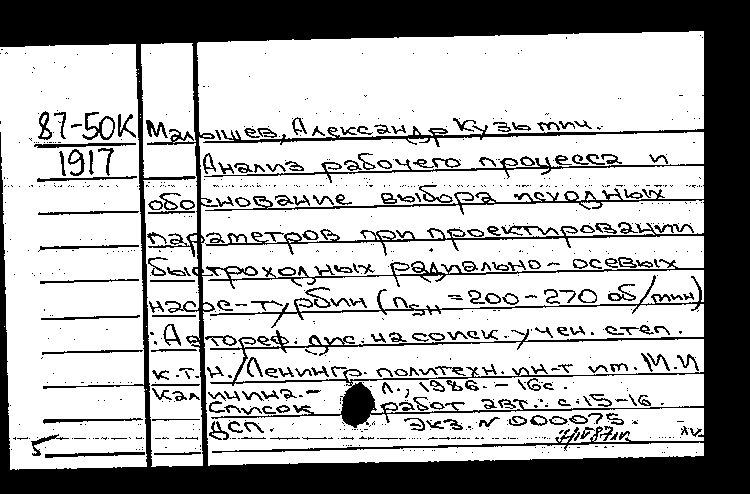 87-50К Малышев, Александр Кузьмич.
1917 Анализ рабочего процесса и
обоснование выбора исходных
параметров при проектировании
быстроходных радиально-осевых
насос-турбин (nsн = 200-270 об/мин)
: Автореф. дис. на соиск. учен. степ.
к.т.н. / Ленингр. политехн. ин-т им. М.И
Калинина. - Л., 1986. - 16с.
Список работ авт.: с. 15-16.
ДСП. Экз. N 000075.
5